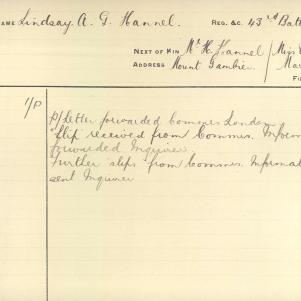 NAME Lindsay. A. G. Hannel. REG. &C. 43rd Batt
NEXT OF KIN Mr H. Hannel / Miss
ADDRESS Mount Gambier / Mar
FI
1/P
P/Letter forwarded Commes London
Slip received from Commes. Inform
forwarded Inquirer.
Further slips from Commes. Informat
sent Inquirer